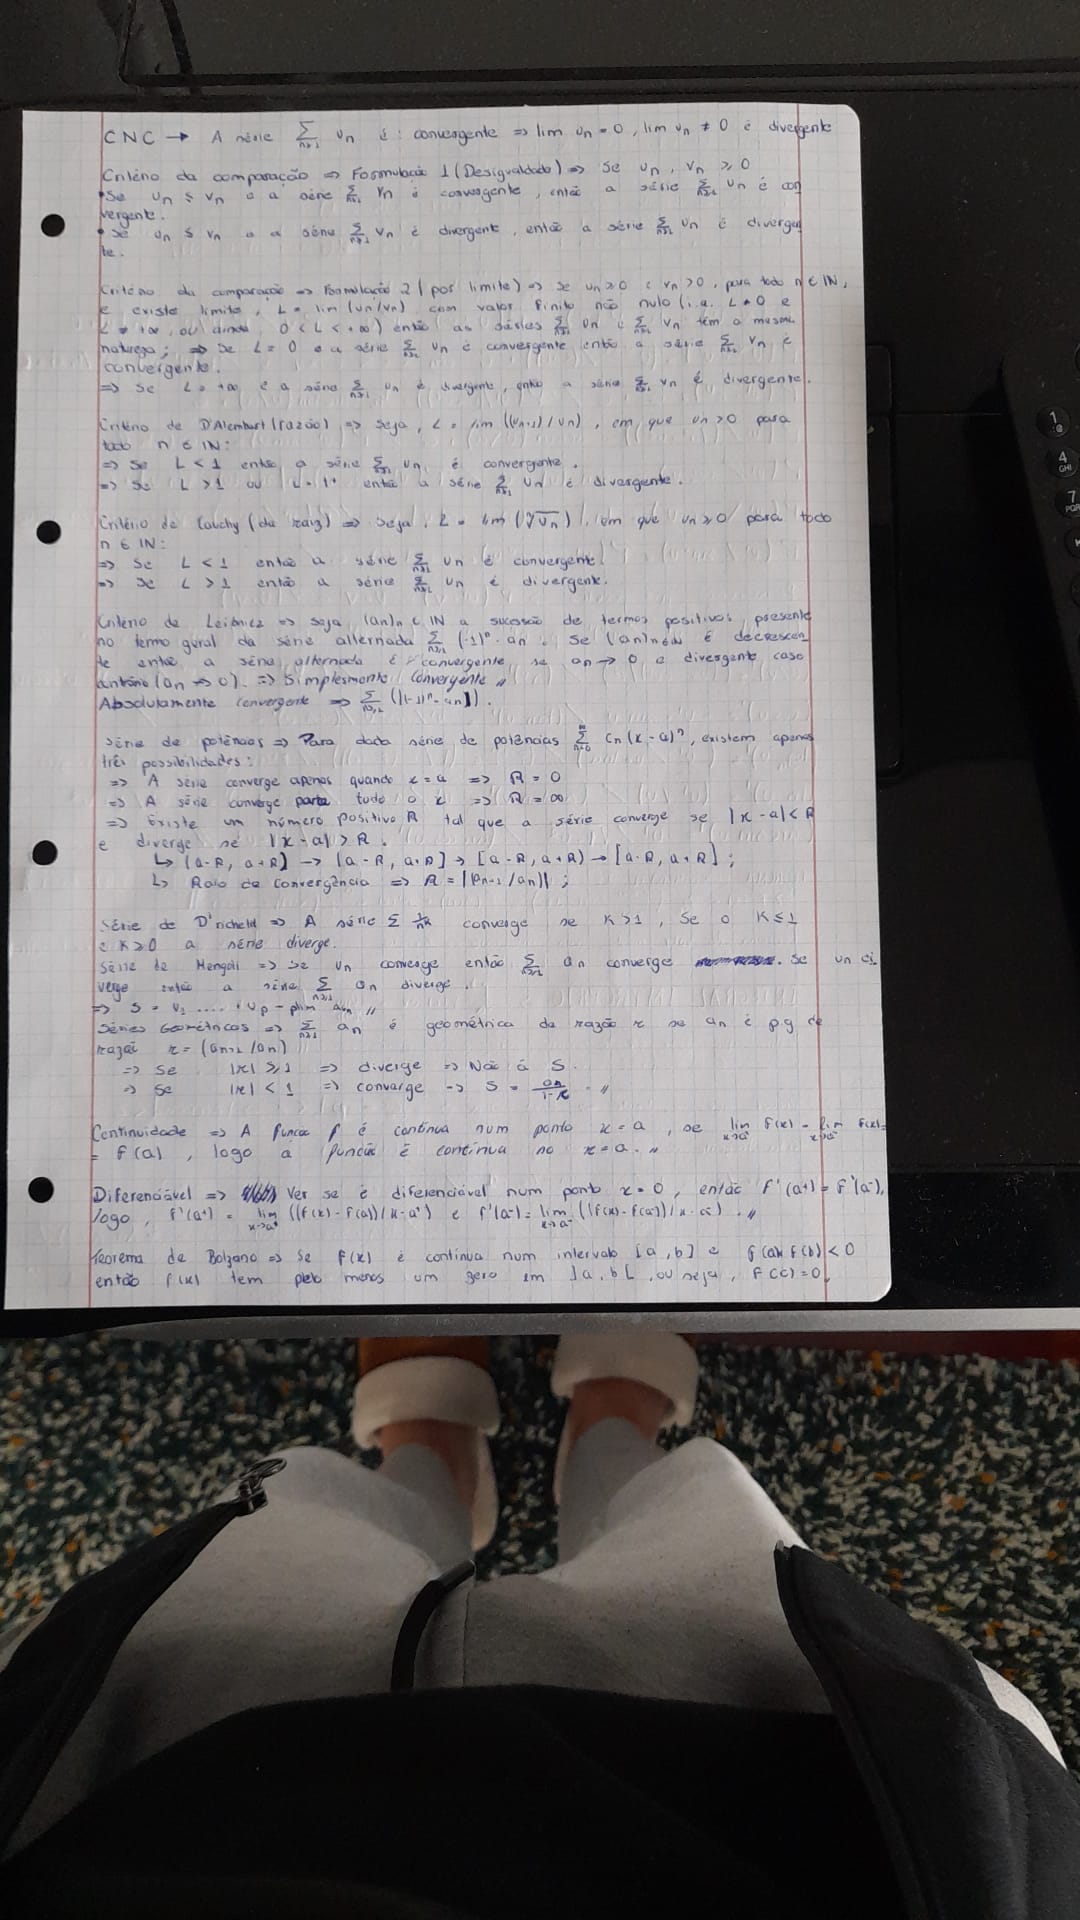 CNC → A série Σ n≥1 un é: convergente => lim un = 0, lim un ≠ 0 é divergente
Critério da comparação => Formulação 1 (Desigualdade) => Se un, vn ≥ 0
• Se un ≤ vn e a série Σ n≥1 vn é convergente, então a série Σ n≥1 un é con
vergente.
• Se un ≤ vn e a série Σ n≥1 vn é divergente, então a série Σ n≥1 un é divergen
te.
Critério da comparação => Formulação 2 (por limite) => Se un ≥ 0 e vn > 0, para todo n ∈ IN,
e existe limite, L = lim (un/vn) com valor finito não nulo (i.e. L ≠ 0 e
L ≠ +∞, ou ainda 0 < L < +∞) então as séries Σ n≥1 un e Σ n≥1 vn têm a mesma
natureza; => Se L = 0 e a série Σ n≥1 un é convergente então a série Σ n≥1 vn é
convergente.
=> Se L = +∞ e a série Σ n≥1 un é divergente, então a série Σ n≥1 vn é divergente.
Critério de D'Alembert (razão) => Seja, L = lim ((un+1)/un), em que un > 0 para
todo n ∈ IN:
=> Se L < 1 então a série Σ n≥1 un é convergente.
=> Se L > 1 ou L = 1⁺ então a série Σ n≥1 un é divergente.
Critério de Cauchy (da raiz) => Seja, L = lim (ⁿ√un), em que un ≥ 0 para todo
n ∈ IN:
=> Se L < 1 então a série Σ n≥1 un é convergente.
=> Se L > 1 então a série Σ n≥1 un é divergente.
Critério de Leibniz => Seja (an)n ∈ IN a sucessão de termos positivos presente
no termo geral da série alternada Σ n≥1 (-1)ⁿ · an. Se (an)n∈IN é decrescen
te então a série alternada é convergente se an → 0 e divergente caso
contrário (an ↛ 0). => Simplesmente Convergente //
Absolutamente Convergente => Σ n≥1 (|(-1)ⁿ · an|).
Série de potências => Para dada série de potências Σ n=0 ∞ cn(x-a)ⁿ, existem apenas
três possibilidades:
=> A série converge apenas quando x = a => R = 0
=> A série converge para todo o x => R = ∞
=> Existe um número positivo R tal que a série converge se |x-a| < R
e diverge se |x-a| > R.
↳ (a-R, a+R) → (a-R, a+R] → [a-R, a+R) → [a-R, a+R];
↳ Raio de convergência => R = |(an+1/an)|;
Série de D'richelet => A série Σ 1/nᵏ converge se K > 1, Se o K ≤ 1
e K ≥ 0 a série diverge.
Série de Mengoli => Se un converge então Σ n≥1 an converge. Se un di
verge então a série Σ n≥1 an diverge.
=> S = u1 .... + up - plim an //
Séries Geométricas => Σ n≥1 an é geométrica de razão r se an é p.g de
razão r = (an+1/an)
=> Se |r| ≥ 1 => diverge => Não á S.
=> Se |r| < 1 => converge → S = a1/1-r . //
Continuidade => A função f é contínua num ponto x = a, se lim x→a⁺ f(x) = lim x→a⁻ f(x) =
= f(a), logo a função é contínua no x = a. //
Diferenciável => Ver se é diferenciável num ponto x = 0, então f'(a⁺) = f'(a⁻),
logo, f'(a⁺) = lim x→a⁺ ((f(x) - f(a))/x-a⁺) e f'(a⁻) = lim x→a⁻ ((f(x) - f(a))/x-a). //
Teorema de Bolzano => Se f(x) é contínua num intervalo [a, b] e f(a)x f(b) < 0
então f(x) tem pelo menos um zero em ]a, b[, ou seja, F(c) = 0.
1
4
GHI
7
PQR